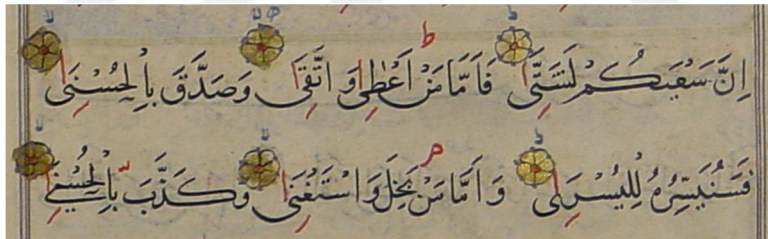 اِنَّ سَعْيَكُمْ لَشَتّٰى فَاَمَّا مَنْ اَعْطٰى وَاتَّقٰى وَصَدَّقَ بِالْحُسْنٰى
فَسَنُيَسِّرُهُ لِلْيُسْرٰى وَاَمَّا مَنْ بَخِلَ وَاسْتَغْنٰى وَكَذَّبَ بِالْحُسْنٰى